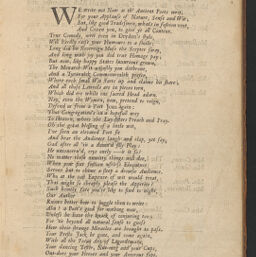 WE write not Now as th' Ancient Poets writ,
For your Applause of Nature, Sense and Wit;
But, like good Tradesmen, what's in fashion vent,
And Cozen you, to give ye all Content.
True Comedy, writ even in Dryden's Style,
Will hardly raise your Humours to a Smile;
Long did his Sovereign Muse the Scepter sway,
And long with Joy you did true Homage pay:
But now, like happy States, luxurious grown,
The Monarch Wit unjustly you dethrone,
And a Tyrannick Commonwealth prefer,
Where each small Wit starts up and claims his share;
And all those Laurels are in pieces torn,
Which did e're while one sacred Head adorn.
Nay, even the Women, now, pretend to reign,
Defend us from a Poet Joan again:
That Congregation's in a hopeful way
To Heaven, where the Lay-Sisters Preach and Pray.
Oh the great Blessing of a little Wit,
I've seen an elevated Poet sit
And hear the Audience laugh and clap, yet say,
Gad after all 'tis a damn'd silly Play:
He unconcern'd, cryes only—is it so?
No matter these unwitty things will do,
When your fine fustian useless Eloquence
Serves but to chime asleep a drousie Audience.
Who at the vast Expence of Wit would treat,
That might so cheaply please the Appetite?
Such homely Fare you're like to find to night,
Our Author
Knows better how to juggle than to write:
Alas! a Poet's good for nothing now,
Unless he have the knack of conjuring too;
For 'tis beyond all natural Sense to guess
How their strange Miracles are brought to pass.
Your Presto Jack be gone, and come again,
With all the Hocus Art of Legerdemain;
Your dancing Tester, Nut-meg and your Cups,
Out-does your Heroes and your Amorous Fops.